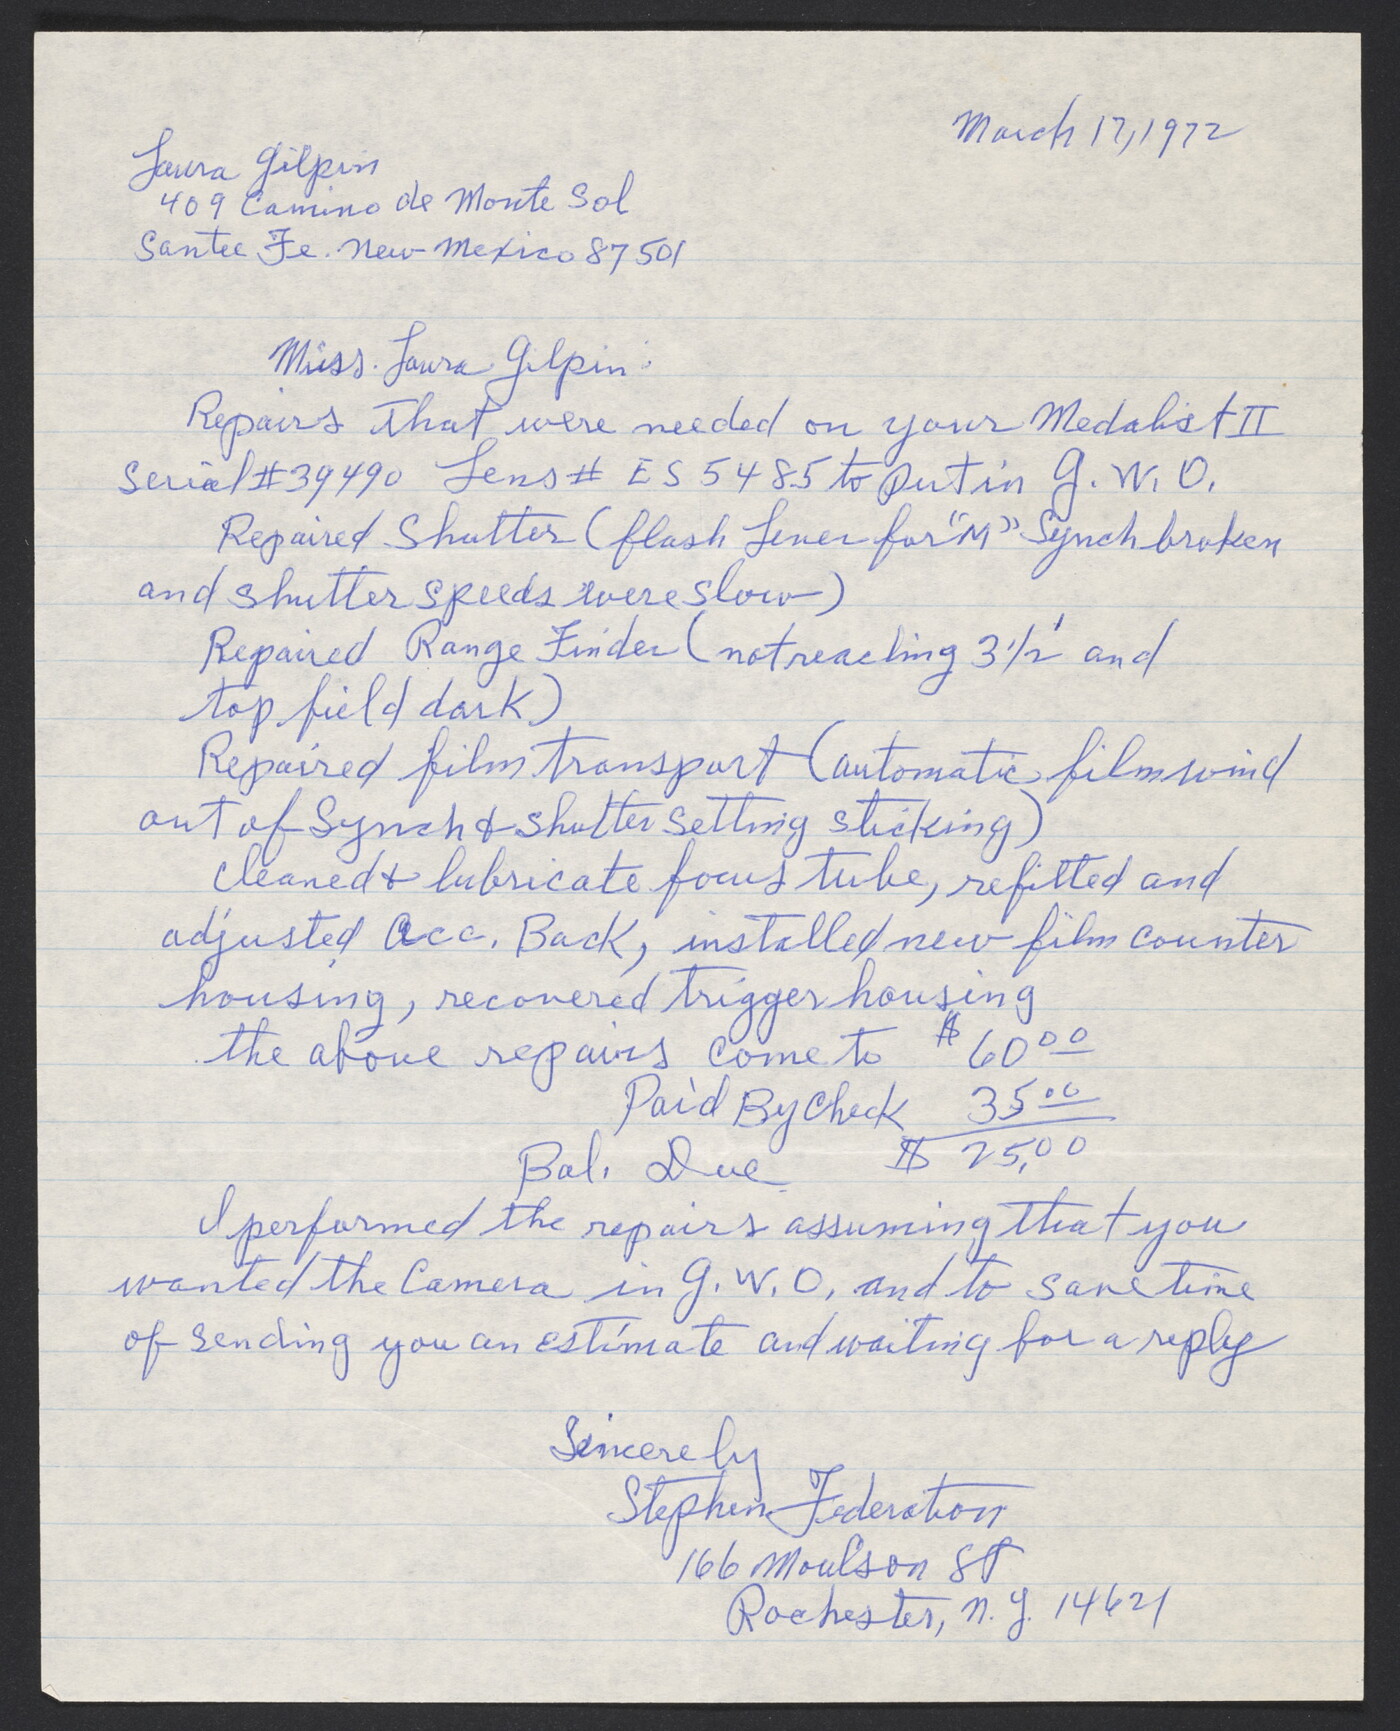 March 17, 1972
Laura Gilpin
409 Camino de Monte Sol
Santee Fe. New Mexico 87501
Miss. Laura Gilpin:
Repairs that were needed on your Medalist II
Serial # 39490 Lens # ES 5485 to put in G.W.O.
Repaired Shutter (flash Lever for "M" Synch broken
and shutter speeds were slow)
Repaired Range Finder (not reaching 3 1/2' and
top field dark)
Repaired film transport (automatic film wind
out of Synch & shutter setting sticking)
cleaned & lubricate focus tube, refitted and
adjusted Acc. Back, installed new film counter
housing, recovered trigger housing
the above repairs come to $60.00
Paid By Check 35.00
Bal. Due $25.00
I performed the repairs assuming that you
wanted the Camera in G.W.O. and to save time
of sending you an estimate and waiting for a reply
Sincerely
Stephen Federation
166 Moulson St
Rochester, N.Y. 14621